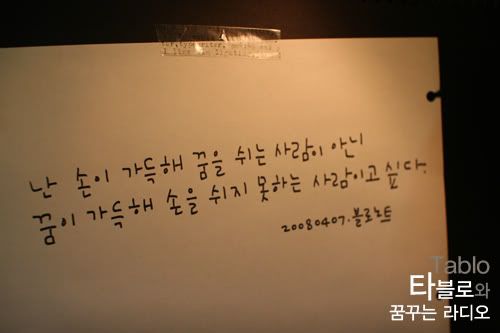 난 손이 가득해 꿈을 쉬는 사람이 아닌
꿈이 가득해 손을 쉬지 못하는 사람이고 싶다.
20080407. 블로노트
Tablo
타블로와
꿈꾸는 라디오